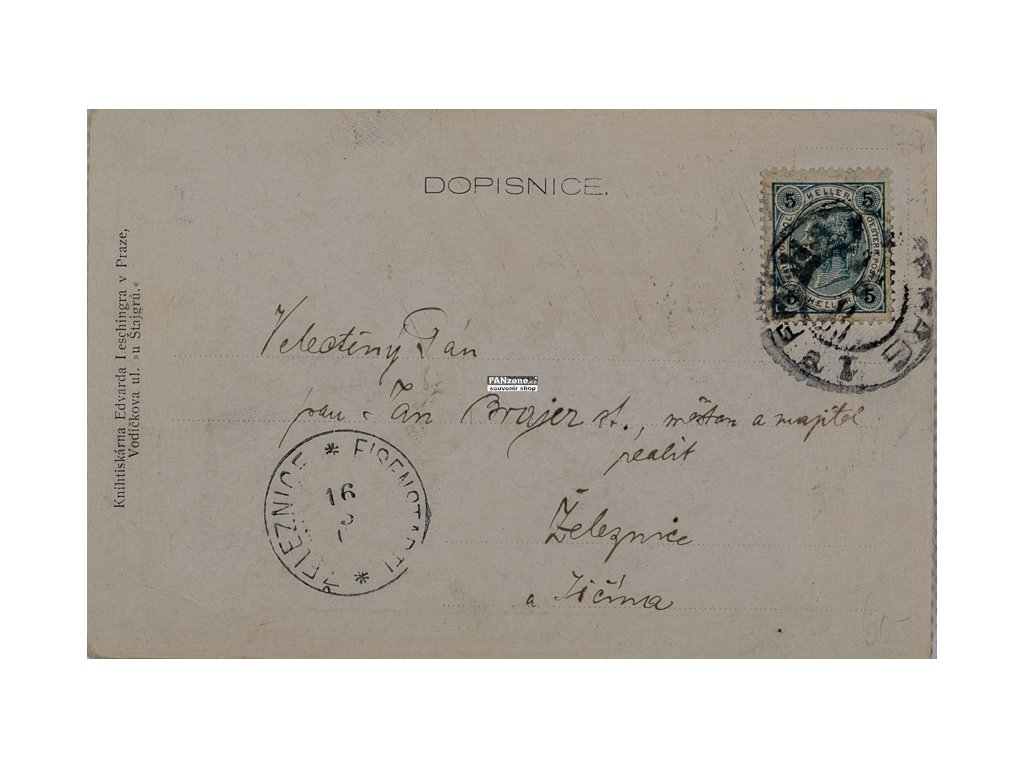 DOPISNICE.
5 HELLER 5
5 HELLER 5
Knihtiskárna Edvarda Leschingra v Praze,
Vodičkova ul. »u Štajgrů.«
Velectěný Pán
FANzone.cz
souvenir shop
pan Jan Brajer st., měšťan a majitel
realit
Železnice
u Jičína
ŽELEZNICE * EISENSTADTL *
16
60-